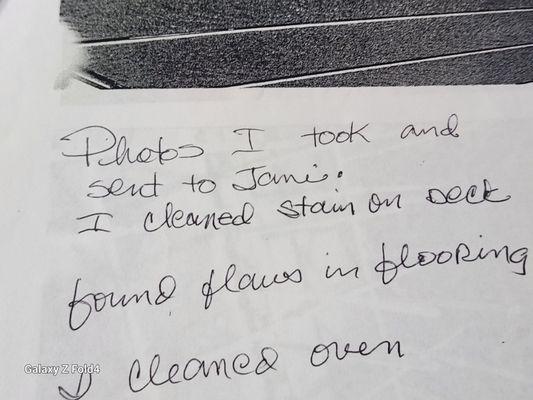 Photos I took and
sent to Jani.
I cleaned stain on Deck
found flaws in flooring
I cleaned oven
Galaxy Z Fold4